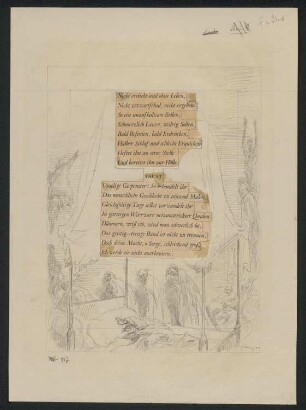 Nicht erfreut und ohne Leben,
Nicht verzweifelnd, nicht ergeben.
So ein unaufhaltsam Rollen,
Schmerzlich Lassen, widrig Sollen,
Bald Befreien, bald Erdrücken,
Halber Schlaf und schlecht Erquicken
Heftet ihn an seine Stelle
Und bereitet ihn zur Hölle.
FAUST
Unselige Gespenster! So behandelt ihr
Das menschliche Geschlecht zu tausend Malen;
Gleichgültige Tage selbst verwandelt ihr
In garstigen Wirrwarr netzumstrickter Qualen.
Dämonen, weiß ich, wird man schwerlich los,
Das geistig-strenge Band ist nicht zu trennen;
Doch deine Macht, o Sorge, schleichend groß,
Ich werde sie nicht anerkennen.